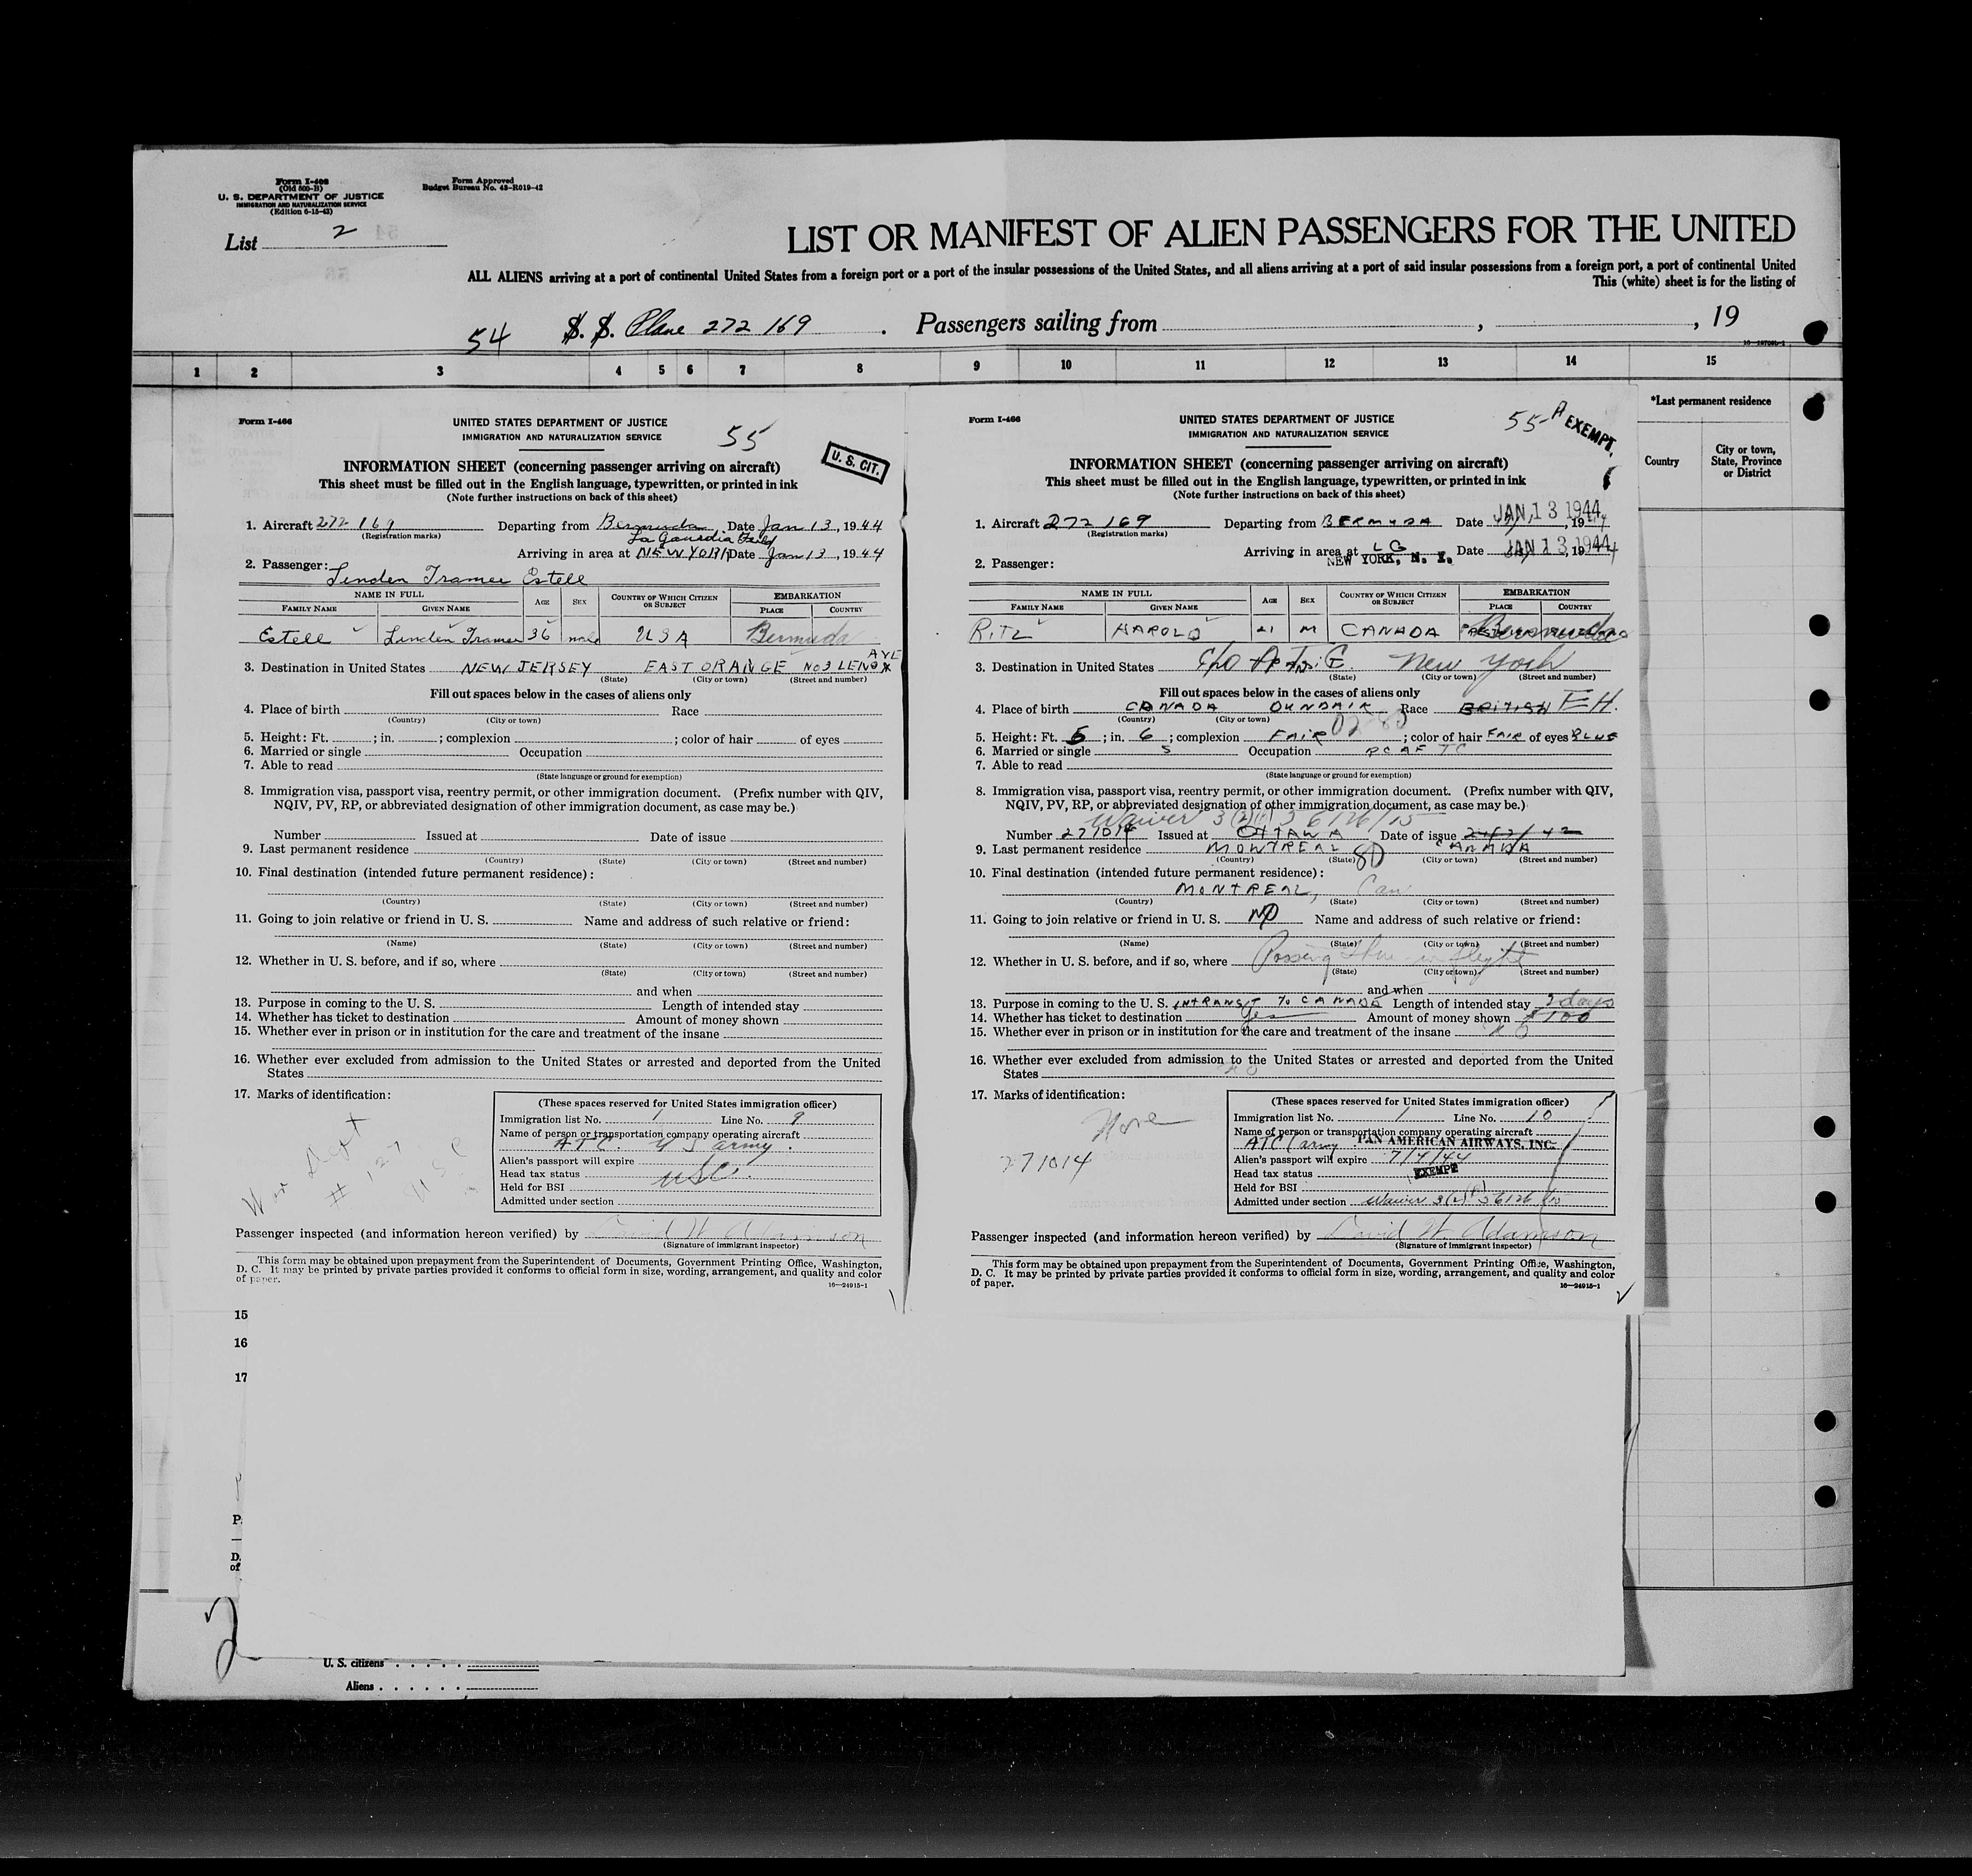 Form I-466
(Old 500-B)
U. S. DEPARTMENT OF JUSTICE
IMMIGRATION AND NATURALIZATION SERVICE
(Edition 6-15-43)
Form Approved
Budget Bureau No. 43-R019-42
List 2
LIST OR MANIFEST OF ALIEN PASSENGERS FOR THE UNITED
ALL ALIENS arriving at a port of continental United States from a foreign port or a port of the insular possessions of the United States, and all aliens arriving at a port of said insular possessions from a foreign port, a port of continental United
This (white) sheet is for the listing of
54 S. S. Plane 272 169 . Passengers sailing from , , 19
1 2 3 4 5 6 7 8 9 10 11 12 13 14 15
*Last permanent residence
Country
City or town, State, Province or District
Form I-466
UNITED STATES DEPARTMENT OF JUSTICE
IMMIGRATION AND NATURALIZATION SERVICE
55
U. S. CIT.
INFORMATION SHEET (concerning passenger arriving on aircraft)
This sheet must be filled out in the English language, typewritten, or printed in ink
(Note further instructions on back of this sheet)
1. Aircraft 272 169 Departing from Bermuda, Date Jan 13, 1944
(Registration marks) La Gaurdia Field
Arriving in area at NEW YORK Date Jan 13, 1944
2. Passenger: Linden Tramer Estell
NAME IN FULL AGE SEX COUNTRY OF WHICH CITIZEN OR SUBJECT EMBARKATION
FAMILY NAME GIVEN NAME PLACE COUNTRY
Estell Linden Tramer 36 male USA Bermuda
3. Destination in United States NEW JERSEY EAST ORANGE NO 3 LENOX AVE
(State) (City or town) (Street and number)
Fill out spaces below in the cases of aliens only
4. Place of birth Race
(Country) (City or town)
5. Height: Ft. ; in. ; complexion ; color of hair of eyes
6. Married or single Occupation
7. Able to read
(State language or ground for exemption)
8. Immigration visa, passport visa, reentry permit, or other immigration document. (Prefix number with QIV,
NQIV, PV, RP, or abbreviated designation of other immigration document, as case may be.)
Number Issued at Date of issue
9. Last permanent residence
(Country) (State) (City or town) (Street and number)
10. Final destination (intended future permanent residence):
(Country) (State) (City or town) (Street and number)
11. Going to join relative or friend in U. S. Name and address of such relative or friend:
(Name) (State) (City or town) (Street and number)
12. Whether in U. S. before, and if so, where
(State) (City or town) (Street and number)
and when
13. Purpose in coming to the U. S. Length of intended stay
14. Whether has ticket to destination Amount of money shown
15. Whether ever in prison or in institution for the care and treatment of the insane
16. Whether ever excluded from admission to the United States or arrested and deported from the United
States
17. Marks of identification:
War Dept
# 127
USC
(These spaces reserved for United States immigration officer)
Immigration list No. 1 Line No. 9
Name of person or transportation company operating aircraft
ATC. U S army.
Alien's passport will expire
Head tax status USC.
Held for BSI
Admitted under section
Passenger inspected (and information hereon verified) by David W. Adamson
(Signature of immigrant inspector)
This form may be obtained upon prepayment from the Superintendent of Documents, Government Printing Office, Washington,
D. C. It may be printed by private parties provided it conforms to official form in size, wording, arrangement, and quality and color
of paper. 16—24915-1
Form I-466
UNITED STATES DEPARTMENT OF JUSTICE
IMMIGRATION AND NATURALIZATION SERVICE
55-A
EXEMPT.
INFORMATION SHEET (concerning passenger arriving on aircraft)
This sheet must be filled out in the English language, typewritten, or printed in ink
(Note further instructions on back of this sheet)
1. Aircraft 272 169 Departing from BERMUDA Date JAN 13 1944, 19
(Registration marks)
Arriving in area at LG Date JAN 13 1944, 19
NEW YORK, N. Y.
2. Passenger:
NAME IN FULL AGE SEX COUNTRY OF WHICH CITIZEN OR SUBJECT EMBARKATION
FAMILY NAME GIVEN NAME PLACE COUNTRY
RITZ HAROLD 21 M CANADA Bermuda
3. Destination in United States c/o New York
(State) (City or town) (Street and number)
Fill out spaces below in the cases of aliens only
4. Place of birth CANADA Race BRITISH EH.
(Country) (City or town)
5. Height: Ft. 5; in. 6; complexion FAIR; color of hair FAIR of eyes BLUE
6. Married or single S Occupation RCAF TC
7. Able to read
(State language or ground for exemption)
8. Immigration visa, passport visa, reentry permit, or other immigration document. (Prefix number with QIV,
NQIV, PV, RP, or abbreviated designation of other immigration document, as case may be.)
Waiver 3(2)(6) 36126/15
Number 271014 Issued at OTTAWA Date of issue
9. Last permanent residence MONTREAL 80 CANADA
(Country) (State) (City or town) (Street and number)
10. Final destination (intended future permanent residence):
MONTREAL, Can
(Country) (State) (City or town) (Street and number)
11. Going to join relative or friend in U. S. NO Name and address of such relative or friend:
(Name) (State) (City or town) (Street and number)
12. Whether in U. S. before, and if so, where Passing thru in flight
(State) (City or town) (Street and number)
and when
13. Purpose in coming to the U. S. INTRANSIT TO CANADA Length of intended stay 2 days
14. Whether has ticket to destination Yes Amount of money shown $100
15. Whether ever in prison or in institution for the care and treatment of the insane No
16. Whether ever excluded from admission to the United States or arrested and deported from the United
States No
17. Marks of identification:
None
271014
(These spaces reserved for United States immigration officer)
Immigration list No. 1 Line No. 10
Name of person or transportation company operating aircraft
ATC (army PAN AMERICAN AIRWAYS, INC.
Alien's passport will expire 7/4/44
Head tax status EXEMPT
Held for BSI
Admitted under section Waiver 3(2)(6) 36126/15
Passenger inspected (and information hereon verified) by David W. Adamson
(Signature of immigrant inspector)
This form may be obtained upon prepayment from the Superintendent of Documents, Government Printing Office, Washington,
D. C. It may be printed by private parties provided it conforms to official form in size, wording, arrangement, and quality and color
of paper. 16—24915-1
15
16
17
P
D.
of
2
U. S. citizens
Aliens